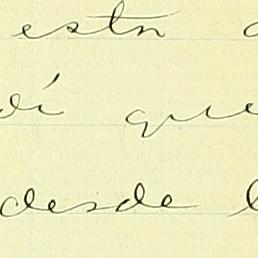 esta
dí que
desde l